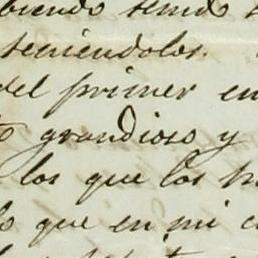 biendo tenido
teniendolos.
del primer en
grandioso y
los que los h
que en mi c